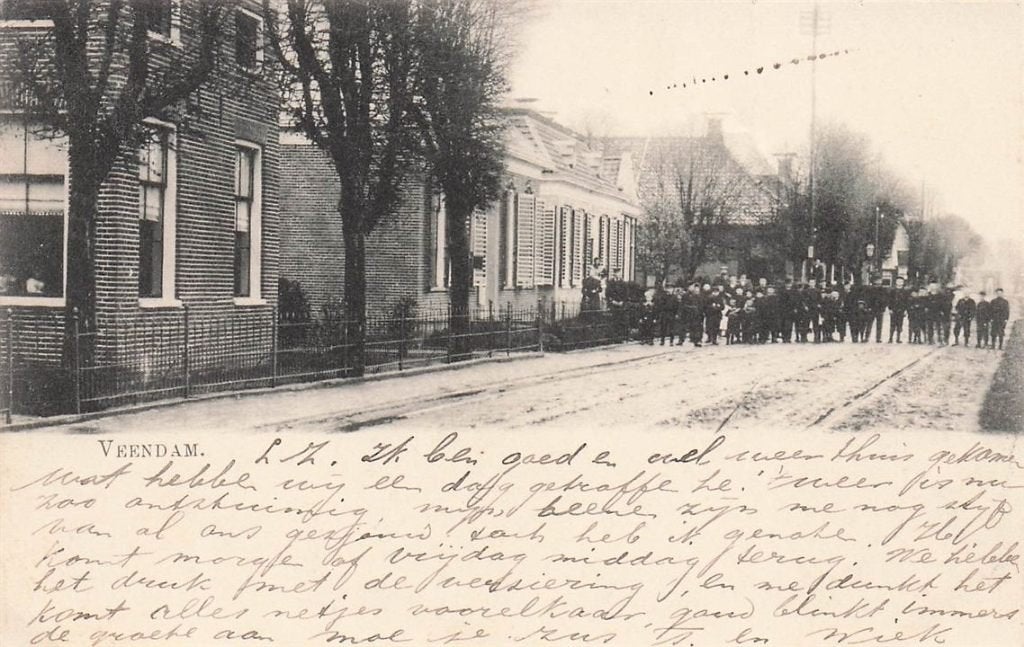 VEENDAM.
L Z. Ik ben goed en wel weer thuis gekomen
Wat hebben wij een dag getroffe he. 't weer is nu
zoo onstuimig, mijn beene zijn me nog stijf
van al ons gesjouw toch heb ik genoten.
komt morgen of vrijdag middag terug. We hebbe
het druk met de versiering, en me dunkt het
komt alles netjes voorelkaar, goud blinkt immers
de groete aan moe je zus T. en Wiek